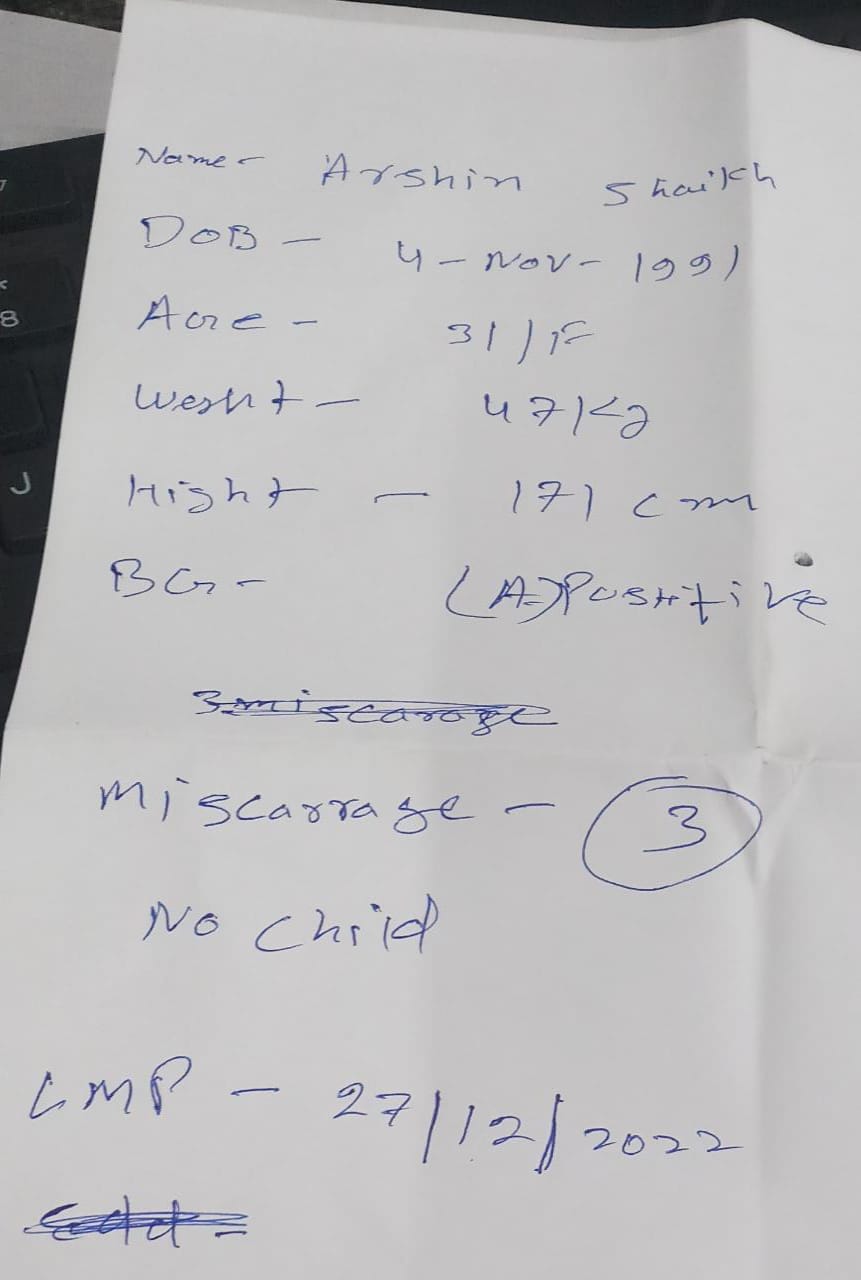 Name - Arshin Shaikh
DOB - 4 - Nov - 1991
Age - 31 / F
Weght - 47 Kg
Hight - 171 cm
BG - (A) Positive
3 miscarage
Miscarrage - 3
No Child
LMP - 27/12/2022
Edd =